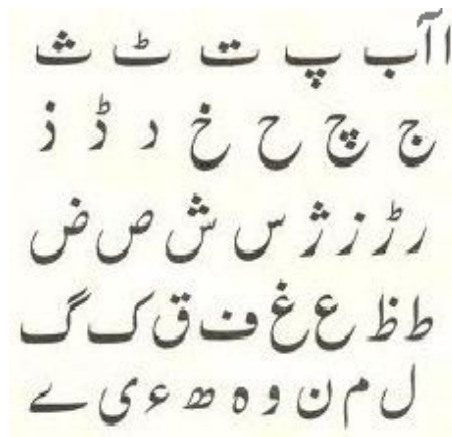 ا آ ب پ ت ٹ ث
ج چ ح خ د ڈ ذ
ر ڑ ز ژ س ش ص ض
ط ظ ع غ ف ق ک گ
ل م ن و ہ ھ ء ی ے